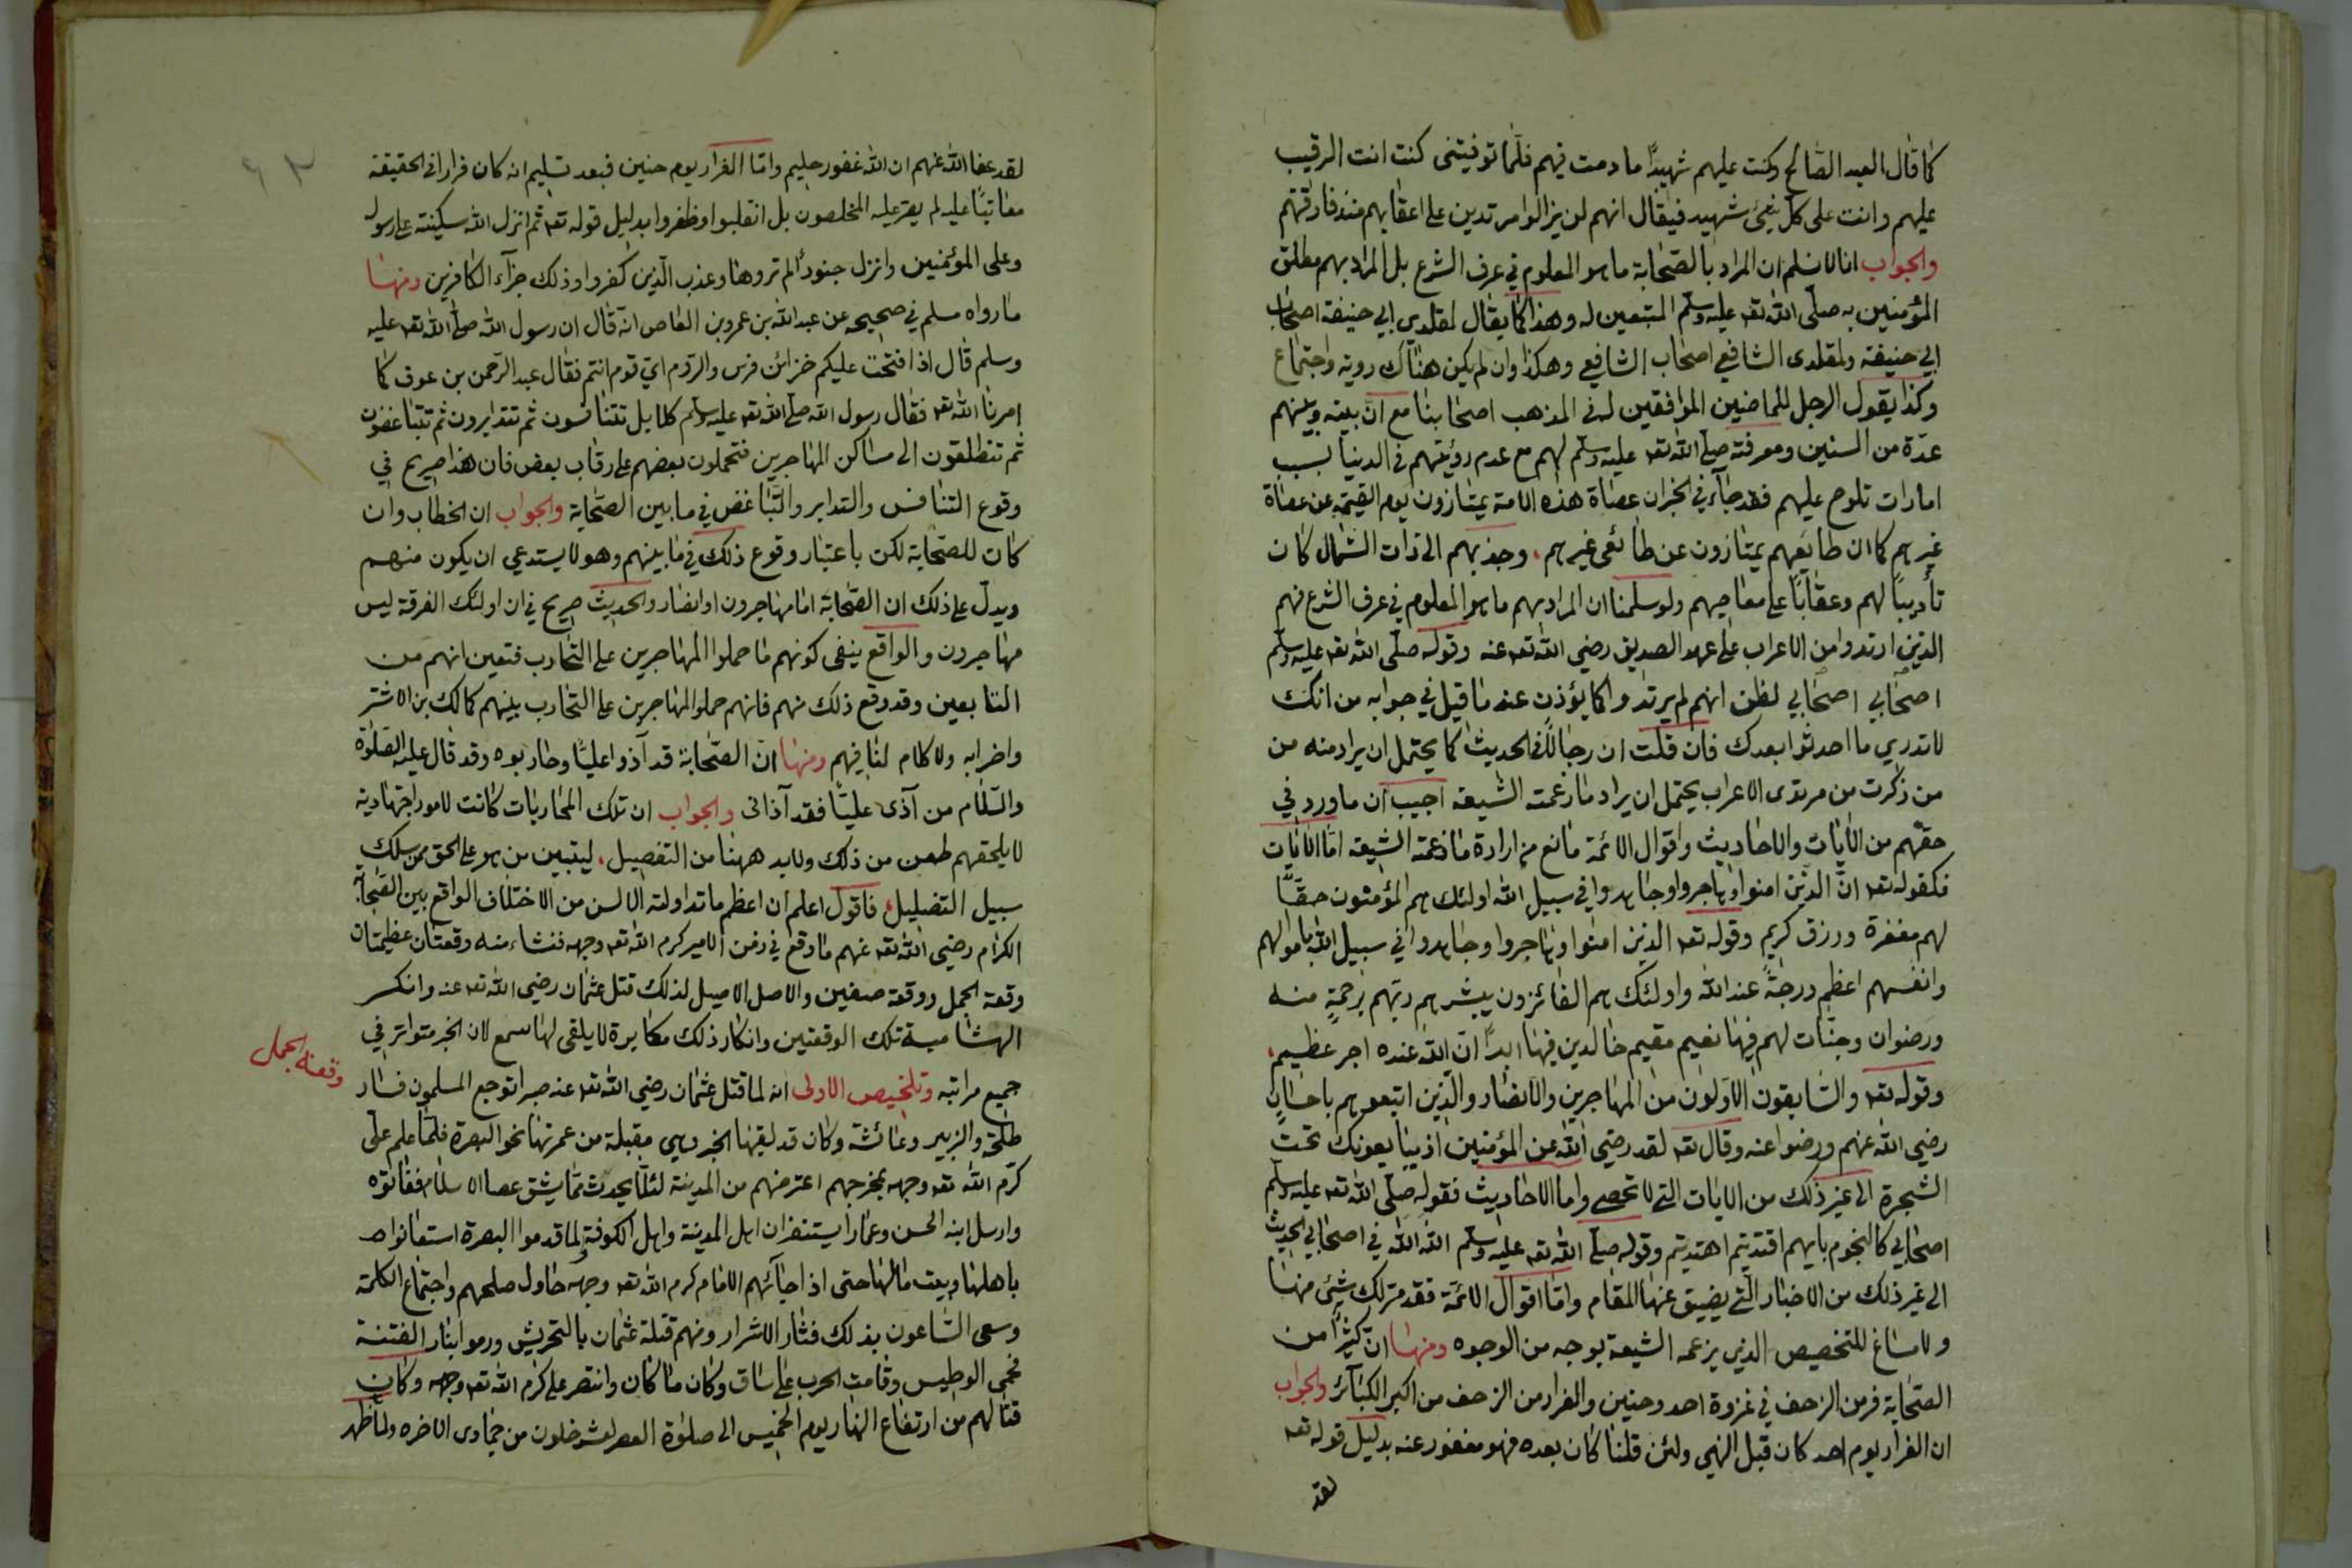 كما قال العبد الصالح وكنت عليهم شهيدًا ما دمت فيهم فلما توفيتنى كنت انت الرقيب
عليهم وانت على كل شئ شهيد فيقال انهم لن يزالوا مرتدين على اعقابهم منذ فارقتهم
والجواب انا لا نسلم ان المراد بالصحابة ما هو المعلوم في عرف الشرع بل المراد بهم مطلق
المؤمنين به صلى الله تعه عليه وسلم المتبعين له وهذا كما يقال لمقلدي ابي حنيفة اصحاب
ابي حنيفة ولمقلدى الشافعي اصحاب الشافعي وهكذا وان لم يكن هناك روية واجتماع
وكذا يقول الرجل للماضين الموافقين له في المذهب اصحابنا مع ان بينه وبينهم
عدة من السنين ومعرفته صلى الله تعه عليه وسلم لهم مع عدم رؤيتهم في الدنيا بسبب
امارات تلوح عليهم فقد جاء في الخبر ان عصاة هذه الامة يمتازون يوم القيمة عن عصاة
غيرهم كما ان طايعهم يمتازون عن طائعى غيرهم، وجذبهم الى ذات الشمال كان
تأديبًا لهم وعقابًا على معاصيهم ولو سلمنا ان المراد بهم ما هو المعلوم في عرف الشرع فهم
الذين ارتدوا من الاعراب على عهد الصديق رضي الله تعه عنه وقوله صلى الله تعه عليه وسلم
اصحابي اصحابي لظن انهم لم يرتدوا كما يؤذن عنه ما قيل في جوابه من انك
لا تدري ما احدثوا بعدك فان قلت ان رجالًا في الحديث كما يحتمل ان يراد منه من
من ذكرت من مرتدى الاعراب يحتمل ان يراد ما زعمته الشيعه اجيب ان ما ورد في
حقهم من الآيات والاحاديث واقوال الائمة مانع من ارادة ما زعمته الشيعه اما الآيات
فكقوله تعه انّ الذين امنوا وهاجروا وجاهدوا في سبيل الله اولئك هم المؤمنون حقًا
لهم مغفرة ورزق كريم وقوله تعه الذين امنوا وهاجروا وجاهدوا في سبيل الله باموالهم
وانفسهم اعظم درجةً عند الله واولئك هم الفائزون يبشرهم ربهم برحمةٍ منه
ورضوان وجنات لهم فيها نعيم مقيم خالدين فيها ابدًا ان الله عنده اجر عظيم،
وقوله تعه والسابقون الاولون من المهاجرين والانصار والذين اتبعوهم باحسانٍ
رضي الله عنهم ورضوا عنه وقال تعه لقد رضي الله عن المؤمنين اذ يبايعونك تحت
الشجرة الى غير ذلك من الايات التي لا تحصى واما الاحاديث فقوله صلى الله تعه عليه وسلم
اصحابي كالنجوم بايهم اقتديتم اهتديتم وقوله صلى الله تعه عليه وسلم الله الله في اصحابي الحديث
الى غير ذلك من الاخبار التي يضيق عنها المقام واما اقوال الائمة فقد مر لك شئ منها
ولا مساغ للتخصيص الذي يزعمه الشيعة بوجه من الوجوه ومنها ان كثيرًا من
الصحابة فر من الزحف في غزوة احد وحنين والفرار من الزحف من اكبر الكبائر والجواب
ان الفرار يوم احد كان قبل النهي ولئن قلنا كان بعده فهو مغفور عنه بدليل قوله تعه
لقد
٦٣
لقد عفا الله عنهم ان الله غفور حليم واما الفرار يوم حنين فبعد تسليم انه كان فرارا في الحقيقة
معاتبًا عليه لم يصر عليه المخلصون بل انقلبوا وظفروا بدليل قوله تعه ثم انزل الله سكينته على رسوله
وعلى المؤمنين وانزل جنودًا لم تروها وعذب الذين كفروا وذلك جزآء الكافرين ومنها
ما رواه مسلم في صحيحه عن عبد الله بن عمرو بن العاص انه قال ان رسول الله صلى الله تعه عليه
وسلم قال اذا فتحت عليكم خزائن فرس والروم اي قوم انتم فقال عبد الرحمن بن عوف كما
امرنا الله تعه فقال رسول الله صلى الله تعه عليه وسلم كلا بل تتنافسون ثم تتدابرون ثم تتباغضون
ثم تنطلقون الى مساكن المهاجرين فتحملون بعضهم على رقاب بعض فان هذا صريح في
وقوع التنافس والتدابر والتباغض في ما بين الصحابة والجواب ان الخطاب وان
كان للصحابة لكن باعتبار وقوع ذلك في ما بينهم وهو لا يستدعي ان يكون منهم
ويدل على ذلك ان الصحابة اما مهاجرون او انصار والحديث صريح في ان اولئك الفرقة ليس
مهاجرون والواقع ينفى كونهم ما حملوا المهاجرين على التحارب فتعين انهم من
التابعين وقد وقع ذلك منهم فانهم حملوا المهاجرين على التحارب بينهم كمالك بن الاشتر
واضرابه ولا كلام لنا فيهم ومنها ان الصحابة قد آذوا عليًا وحاربوه وقد قال عليه الصلوة
والسلام من آذى عليًا فقد آذانى والجواب ان تلك المحاربات كانت لامور اجتهادية
لا يلحقهم طعن من ذلك ولا بد ههنا من التفصيل، ليتبين من هو على الحق ممن سلك
سبيل التضليل، فاقول اعلم ان اعظم ما تداولته الالسن من الاختلاف الواقع بين الصحابة
الكرام رضي الله تعه عنهم ما وقع في زمن الامير كرم الله تعه وجهه فنشاء منه وقعتان عظيمتان
وقعة الجمل ووقعة صفين والاصل الاصيل لذلك قتل عثمان رضي الله تعه عنه وانكر
الهشامية تلك الوقعتين وانكار ذلك مكابرة لا يلقى لها سمع لان الخبر متواتر في
وقعة الجمل
جميع مراتبه وتلخيص الاولى انه لما قتل عثمان رضي الله تعه عنه صبرا توجع المسلمون فسار
طلحة والزبير وعائشة وكان قد لقيها الخبر وهي مقبلة من عمرتها نحو البصرة فلما علم على
كرم الله تعه وجهه بمخرجهم اعترضهم من المدينة لئلا يحدث ما يشق عصا الاسلام ففاتوه
وارسل ابنه الحسن وعمارا يستنفران اهل المدينة واهل الكوفة ولما قدموا البصرة استعانوا
باهلها وبيت مالها حتى اذا جاءهم الامام كرم الله تعه وجهه حاول صلحهم واجتماع الكلمة
وسعى الساعون بذلك فثار الاشرار ومنهم قتلة عثمان بالتحريش ورموا بنار الفتنة
فحمى الوطيس وقامت الحرب على ساق وكان ما كان وانتصر على كرم الله تعه وجهه وكان
قتالهم من ارتفاع النهار يوم الخميس الى صلوة العصر لعشر خلون من جمادى الاخره ولما ظهر